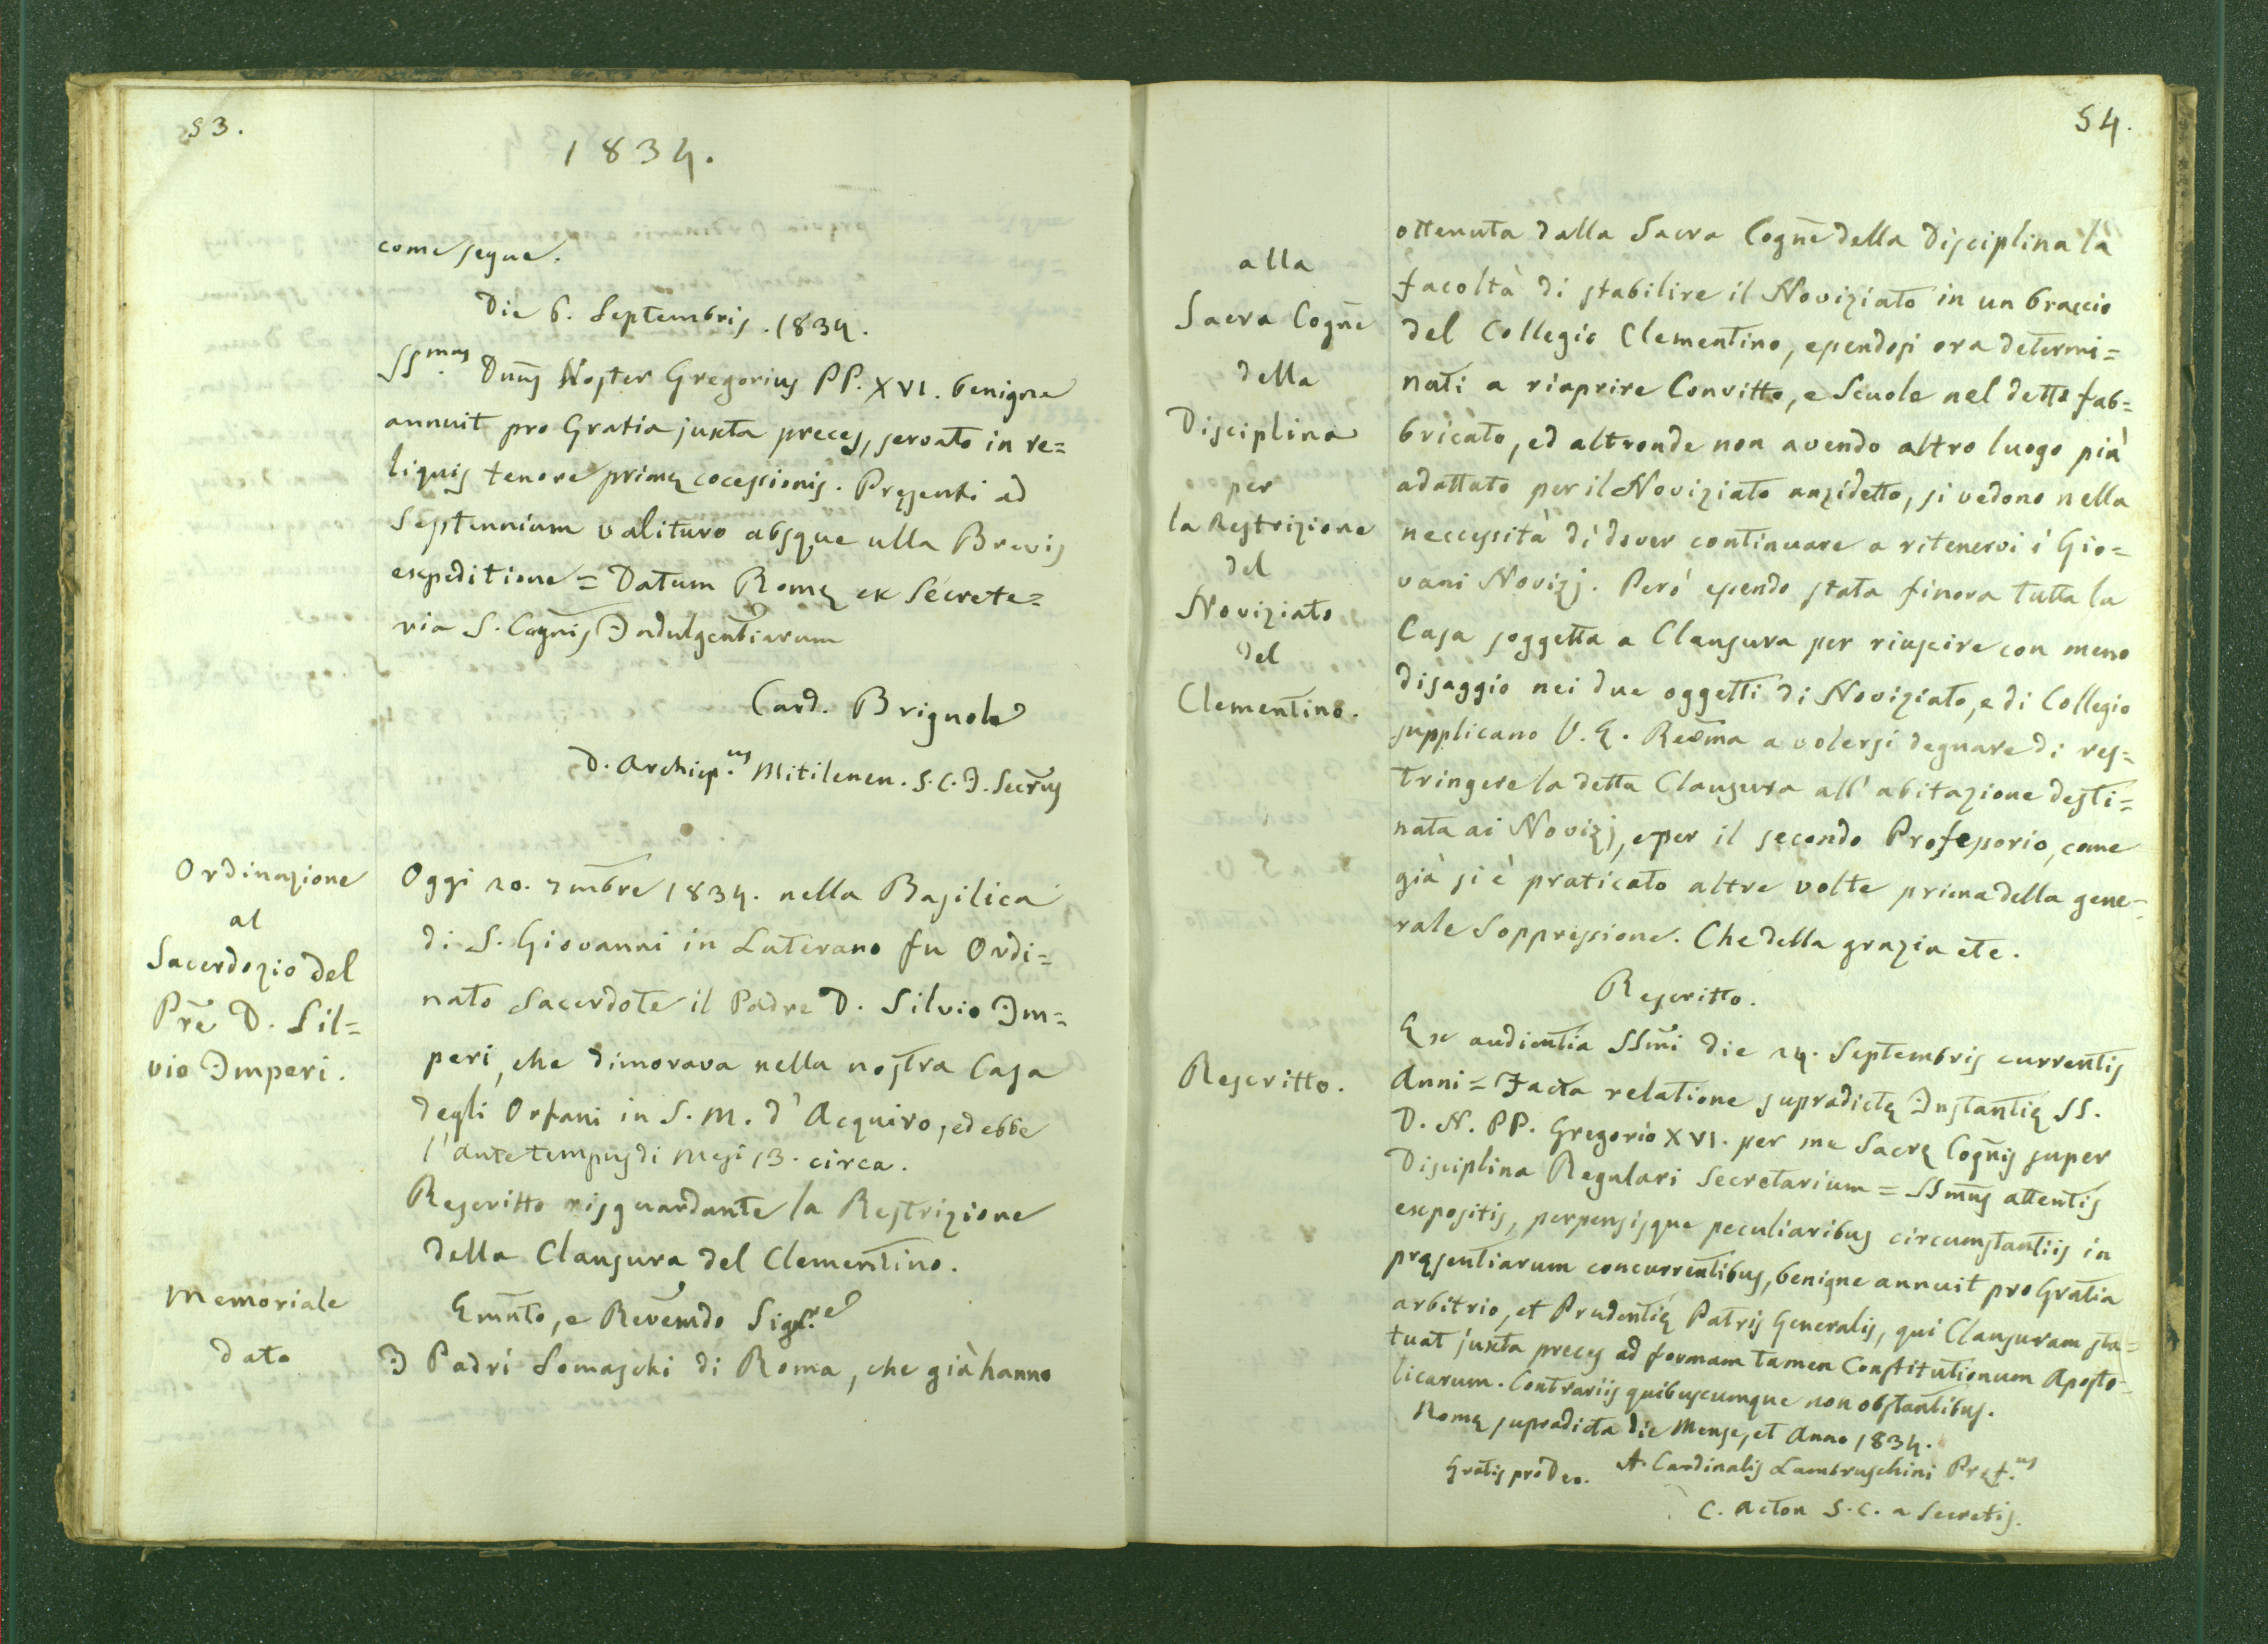 53.
1834.
come segue.
Die 6. Septembris. 1834.
SS.mus Dnus Noster Gregorius PP. XVI. benigne
annuit pro Gratia juxta preces, servato in re=
liquis tenore primę cocessionis. Pręsenti ad
Septennium valituro absque ulla Brevis
expeditione = Datum Romę ex Secrete=
ria S. Cognis Indulgentiarum
Card. Brignole
D. Archiep.us Mitilenen. S. C. I. Secrius
Ordinazione
al
Sacerdozio del
Pre D. Sil=
vio Imperi.
Oggi 20. 7mbre 1834. nella Basilica
di S. Giovanni in Laterano fu Ordi=
nato Sacerdote il Padre D. Silvio Im=
peri, che dimorava nella nostra Casa
degli Orfani in S. M. d'Acquiro, ed ebbe
l'ante tempus di Mesi 13. circa.
Rescritto risguardante la Restrizione
della Clausura del Clementino.
Memoriale
dato
Emnto, e Revemdo Sign.re
I Padri Somaschi di Roma, che già hanno
54.
alla
Sacra Cogne
della
Disciplina
per
la Restrizione
del
Noviziato
del
Clementino.
ottenuta dalla Sacra Cogne della Disciplina la
facoltà di stabilire il Noviziato in un braccio
del Collegio Clementino, essendosi ora determi=
nati a riaprire Convitto, e Scuole nel detto fab=
bricato, ed altronde non avendo altro luogo più
adattato per il Noviziato anzidetto, si vedono nella
neccessità di dover continuare a ritenervi i Gio=
vani Novizj. Però essendo stata finora tutta la
Casa soggetta a Clausura per riuscire con meno
disaggio nei due oggetti di Noviziato, e di Collegio
supplicano V. E. Revma a volersi degnare di res=
tringere la detta Clausura all'abitazione desti=
nata ai Novizj, e per il secondo Professorio, come
già si è praticato altre volte prima della gene=
rale Soppressione. Che della grazia etc.
Rescritto.
Rescritto.
Ex audientia SSmi die 24. Septembris currentis
Anni = Facta relatione supradictę Instantię SS.
D. N. PP. Gregorio XVI. per me Sacrę Cognis super
Disciplina Regulari Secretarium = SSmus attentis
expositis, perpensisque peculiaribus circumstantiis in
pręsentiarum concurrentibus, benigne annuit pro Gratia
arbitrio, et Prudentię Patris Generalis, qui Clausuram sta=
tuat juxta preces ad formam tamen Constitutionum Aposto=
licarum. Contrariis quibuscumque non obstantibus.
Romę supradicta die Mense, et Anno 1834.
Gratis pro Deo. A. Cardinalis Lambruschini Pręf.us
C. Acton S. C. a Secretis.